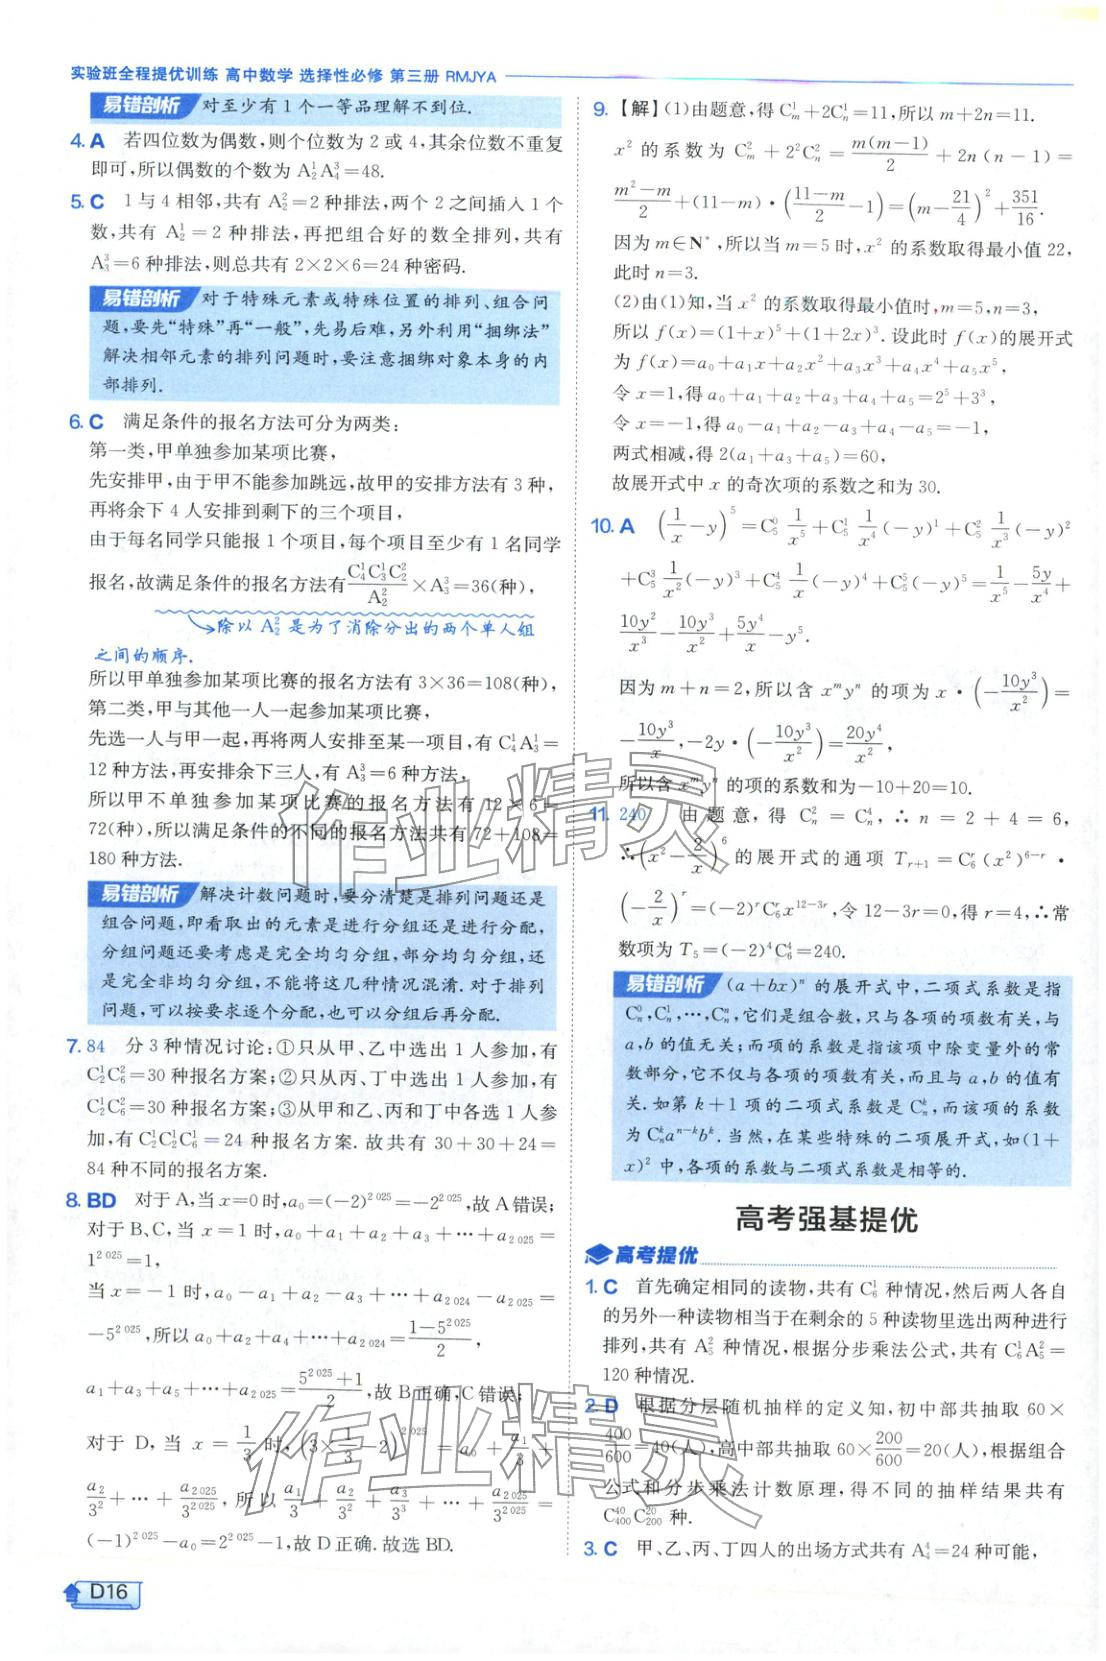 实验班全程提优训练 高中数学 选择性必修 第三册 RMJYA
易错剖析 对至少有1个一等品理解不到位.
4. A 若四位数为偶数,则个位数为2或4,其余位数不重复
即可,所以偶数的个数为A₂¹A₄³=48.
5. C 1与4相邻,共有A₂²=2种排法,两个2之间插入1个
数,共有A₂¹=2种排法,再把组合好的数全排列,共有
A₃³=6种排法,则总共有2×2×6=24种密码.
易错剖析 对于特殊元素或特殊位置的排列、组合问
题,要先“特殊”再“一般”,先易后难,另外利用“捆绑法”
解决相邻元素的排列问题时,要注意捆绑对象本身的内
部排列.
6. C 满足条件的报名方法可分为两类:
第一类,甲单独参加某项比赛,
先安排甲,由于甲不能参加跳远,故甲的安排方法有3种,
再将余下4人安排到剩下的三个项目,
由于每名同学只能报1个项目,每个项目至少有1名同学
报名,故满足条件的报名方法有(C₄¹C₃¹C₂²)/A₂²×A₃³=36(种),
除以A₂²是为了消除分出的两个单人组
之间的顺序.
所以甲单独参加某项比赛的报名方法有3×36=108(种),
第二类,甲与其他一人一起参加某项比赛,
先选一人与甲一起,再将两人安排至某一项目,有C₄¹A₃¹=
12种方法,再安排余下三人,有A₃³=6种方法,
所以甲不单独参加某项比赛的报名方法有12×6=
72(种),所以满足条件的不同的报名方法共有72+108=
180种方法.
易错剖析 解决计数问题时,要分清楚是排列问题还是
组合问题,即看取出的元素是进行分组还是进行分配,
分组问题还要考虑是完全均匀分组,部分均匀分组,还
是完全非均匀分组,不能将这几种情况混淆.对于排列
问题,可以按要求逐个分配,也可以分组后再分配.
7. 84 分3种情况讨论:①只从甲、乙中选出1人参加,有
C₂¹C₆²=30种报名方案;②只从丙、丁中选出1人参加,有
C₂¹C₆²=30种报名方案;③从甲和乙、丙和丁中各选1人参
加,有C₂¹C₂¹C₆¹=24种报名方案.故共有30+30+24=
84种不同的报名方案.
8. BD 对于A,当x=0时,a₀=(-2)^2 025=-2^2 025,故A错误;
对于B、C,当x=1时,a₀+a₁+a₂+a₃+…+a_2 025=
1^2 025=1,
当x=-1时,a₀-a₁+a₂-a₃+…+a_2 024-a_2 025=
-5^2 025,所以a₀+a₂+a₄+…+a_2 024=(1-5^2 025)/2,
a₁+a₃+a₅+…+a_2 025=(5^2 025+1)/2,故B正确,C错误;
对于D,当x=1/3时,(3×1/3-2)^2 025=a₀+a₁/3+
a₂/3²+…+a_2 025/3^2 025,所以a₁/3+a₂/3²+a₃/3³+…+a_2 025/3^2 025=
(-1)^2 025-a₀=2^2 025-1,故D正确.故选BD.
D16
9. 【解】(1)由题意,得C_m¹+2C_n¹=11,所以m+2n=11.
x²的系数为C_m²+2²C_n²=m(m-1)/2+2n(n-1)=
(m²-m)/2+(11-m)·((11-m)/2-1)=(m-21/4)²+351/16.
因为m∈N*,所以当m=5时,x²的系数取得最小值22,
此时n=3.
(2)由(1)知,当x²的系数取得最小值时,m=5,n=3,
所以f(x)=(1+x)⁵+(1+2x)³.设此时f(x)的展开式
为f(x)=a₀+a₁x+a₂x²+a₃x³+a₄x⁴+a₅x⁵,
令x=1,得a₀+a₁+a₂+a₃+a₄+a₅=2⁵+3³,
令x=-1,得a₀-a₁+a₂-a₃+a₄-a₅=-1,
两式相减,得2(a₁+a₃+a₅)=60,
故展开式中x的奇次项的系数之和为30.
10. A (1/x-y)⁵=C₅⁰ 1/x⁵+C₅¹ 1/x⁴(-y)¹+C₅² 1/x³(-y)²
+C₅³ 1/x²(-y)³+C₅⁴ 1/x(-y)⁴+C₅⁵(-y)⁵=1/x⁵-5y/x⁴+
10y²/x³-10y³/x²+5y⁴/x-y⁵.
因为m+n=2,所以含x^m y^n的项为x·(-10y³/x²)=
-10y³/x,-2y·(-10y³/x²)=20y⁴/x²,
所以含x^m y^n的项的系数和为-10+20=10.
11. 240 由题意,得C_n²=C_n⁴,∴n=2+4=6,
∴(x²-2/x)⁶的展开式的通项T_{r+1}=C₆^r(x²)^{6-r}·
(-2/x)^r=(-2)^r C₆^r x^{12-3r},令12-3r=0,得r=4,∴常
数项为T₅=(-2)⁴C₆⁴=240.
易错剖析 (a+bx)ⁿ的展开式中,二项式系数是指
C_n⁰,C_n¹,…,C_nⁿ,它们是组合数,只与各项的项数有关,与
a,b的值无关;而项的系数是指该项中除变量外的常
数部分,它不仅与各项的项数有关,而且与a,b的值有
关.如第k+1项的二项式系数是C_n^k,而该项的系数
为C_n^k a^{n-k}b^k.当然,在某些特殊的二项展开式,如(1+
x)²中,各项的系数与二项式系数是相等的.
高考强基提优
高考提优
1. C 首先确定相同的读物,共有C₆¹种情况,然后两人各自
的另外一种读物相当于在剩余的5种读物里选出两种进行
排列,共有A₅²种情况,根据分步乘法公式,共有C₆¹A₅²=
120种情况.
2. D 根据分层随机抽样的定义知,初中部共抽取60×
400/600=40(人),高中部共抽取60×200/600=20(人),根据组合
公式和分步乘法计数原理,得不同的抽样结果共有
C₄₀₀⁴⁰C₂₀₀²⁰种.
3. C 甲、乙、丙、丁四人的出场方式共有A₄⁴=24种可能,
作业精灵
作业精灵